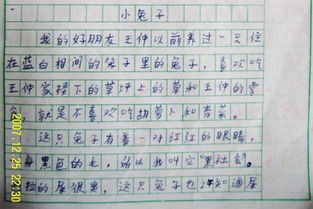 小兔子
我的好朋友王仲以前养过一只住
在蓝白相间的笼子里的兔子，喜欢吃
王仲家楼下的草坪上的草和王仲的零
食，就是不喜欢吃胡萝卜和青菜。
这只兔子有着一对红红的眼睛，
黑色的毛，所以我叫它“黑社会”。
拉的屎很臭，这只兔子也知道屎
2007.12.25 22:30